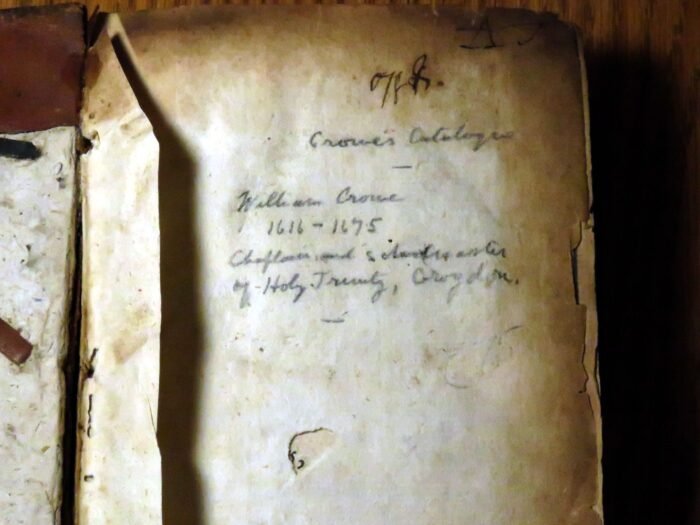 Crowe's Catalogue
William Crowe
1616 - 1675
Chaplain and schoolmaster
of Holy Trinity, Croydon.